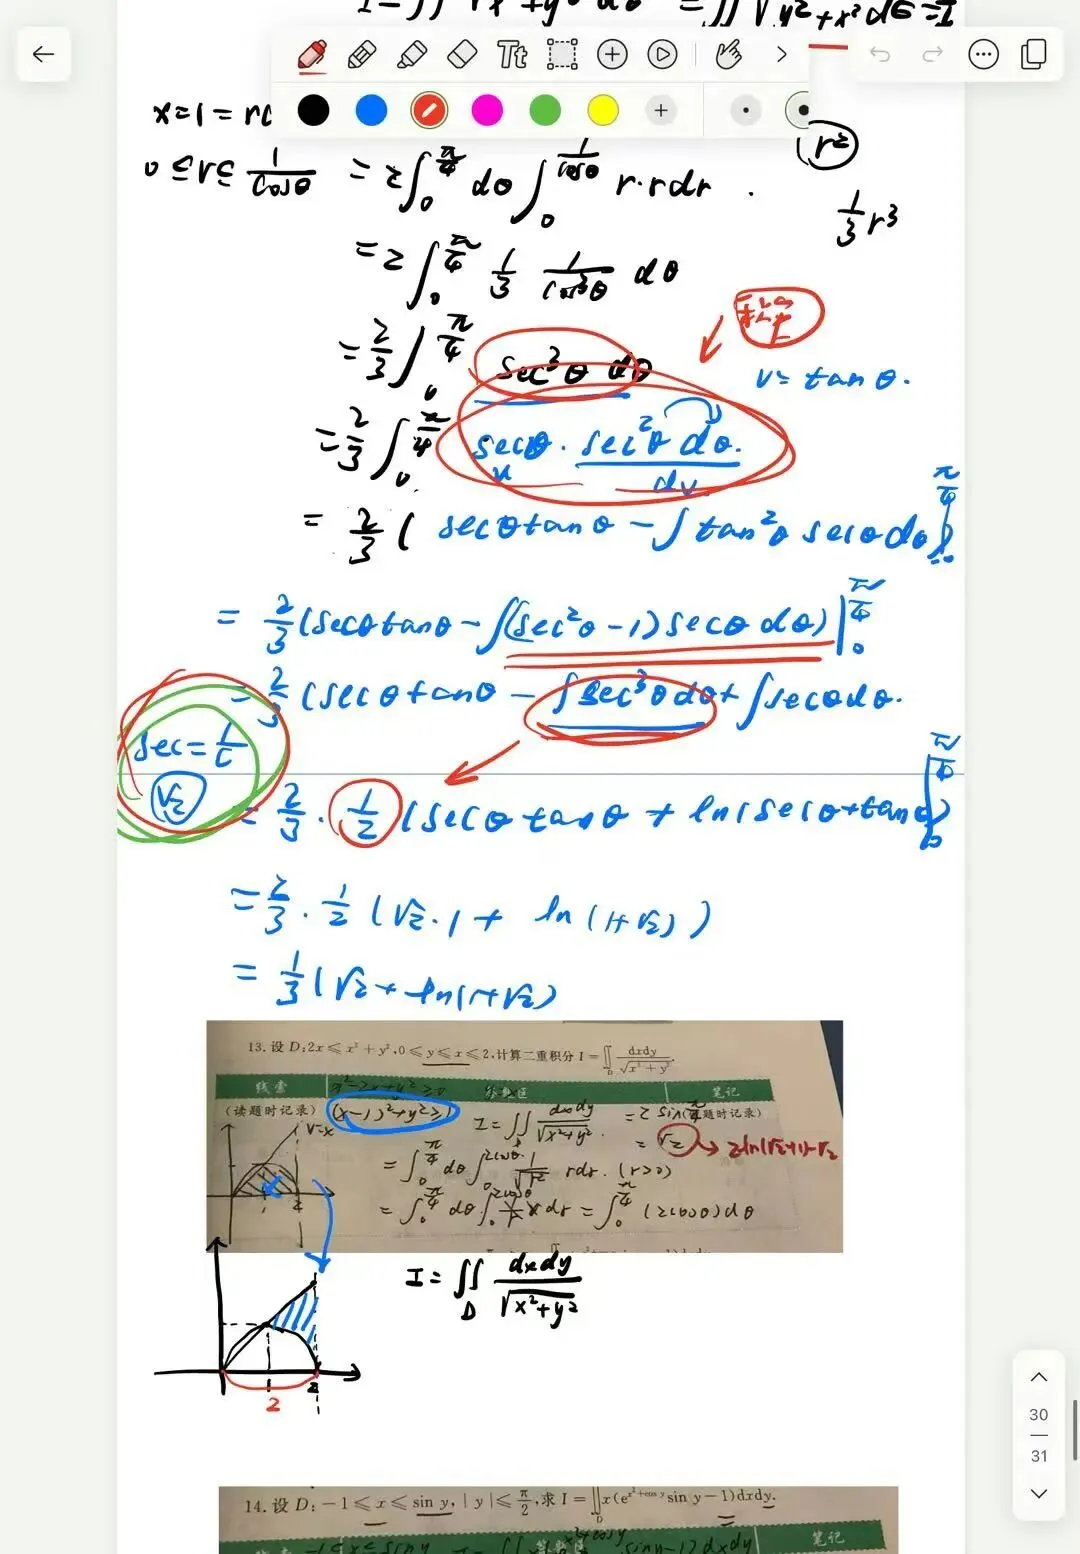 Tt
x=1=rc
0≤r≤1/cosθ =2∫₀^{π/4}dθ∫₀^{1/cosθ} r·rdr.
r²
1/3 r³
=2∫₀^{π/4} 1/3 1/cos³θ dθ
=2/3∫₀^{π/4} sec³θ dθ
v=tanθ.
=2/3∫₀^{π/4} secθ·sec²θdθ.
u dv
=2/3(secθtanθ-∫tan²θsecθdθ)|₀^{π/4}
=2/3(secθtanθ-∫(sec²θ-1)secθdθ)|₀^{π/4}
=2/3(secθtanθ-∫sec³θdθ+∫secθdθ.
sec=1/c
√2
=2/3·1/2(secθtanθ+ln(secθ+tanθ)|₀^{π/4}
=2/3·1/2(√2·1+ln(1+√2))
=1/3(√2+ln(1+√2)
13.设D:2x≤x²+y²,0≤y≤x≤2,计算二重积分I=∬_D dxdy/√(x²+y²).
线索
x²-2x+y²≥0
笔记
(读题时记录)
(x-1)²+y²≥1
I=∬_D dxdy/√(x²+y²)
=2sin π/4
题时记录)
y=x
=√2→2ln(√2+1)-√2
=∫₀^{π/4}dθ∫₀^{2cosθ} 1/√r² rdr. (r>0)
=∫₀^{π/4}dθ∫₀^{2cosθ} 1/r·rdr=∫₀^{π/4}(2cosθ)dθ
1 2
I=∬_D dxdy/√(x²+y²)
2
2
30
31
14.设D:-1≤x≤sin y,|y|≤π/2,求I=∬_D x(e^{x²+cos y}sin y-1)dxdy.
笔记
-1≤x≤siny